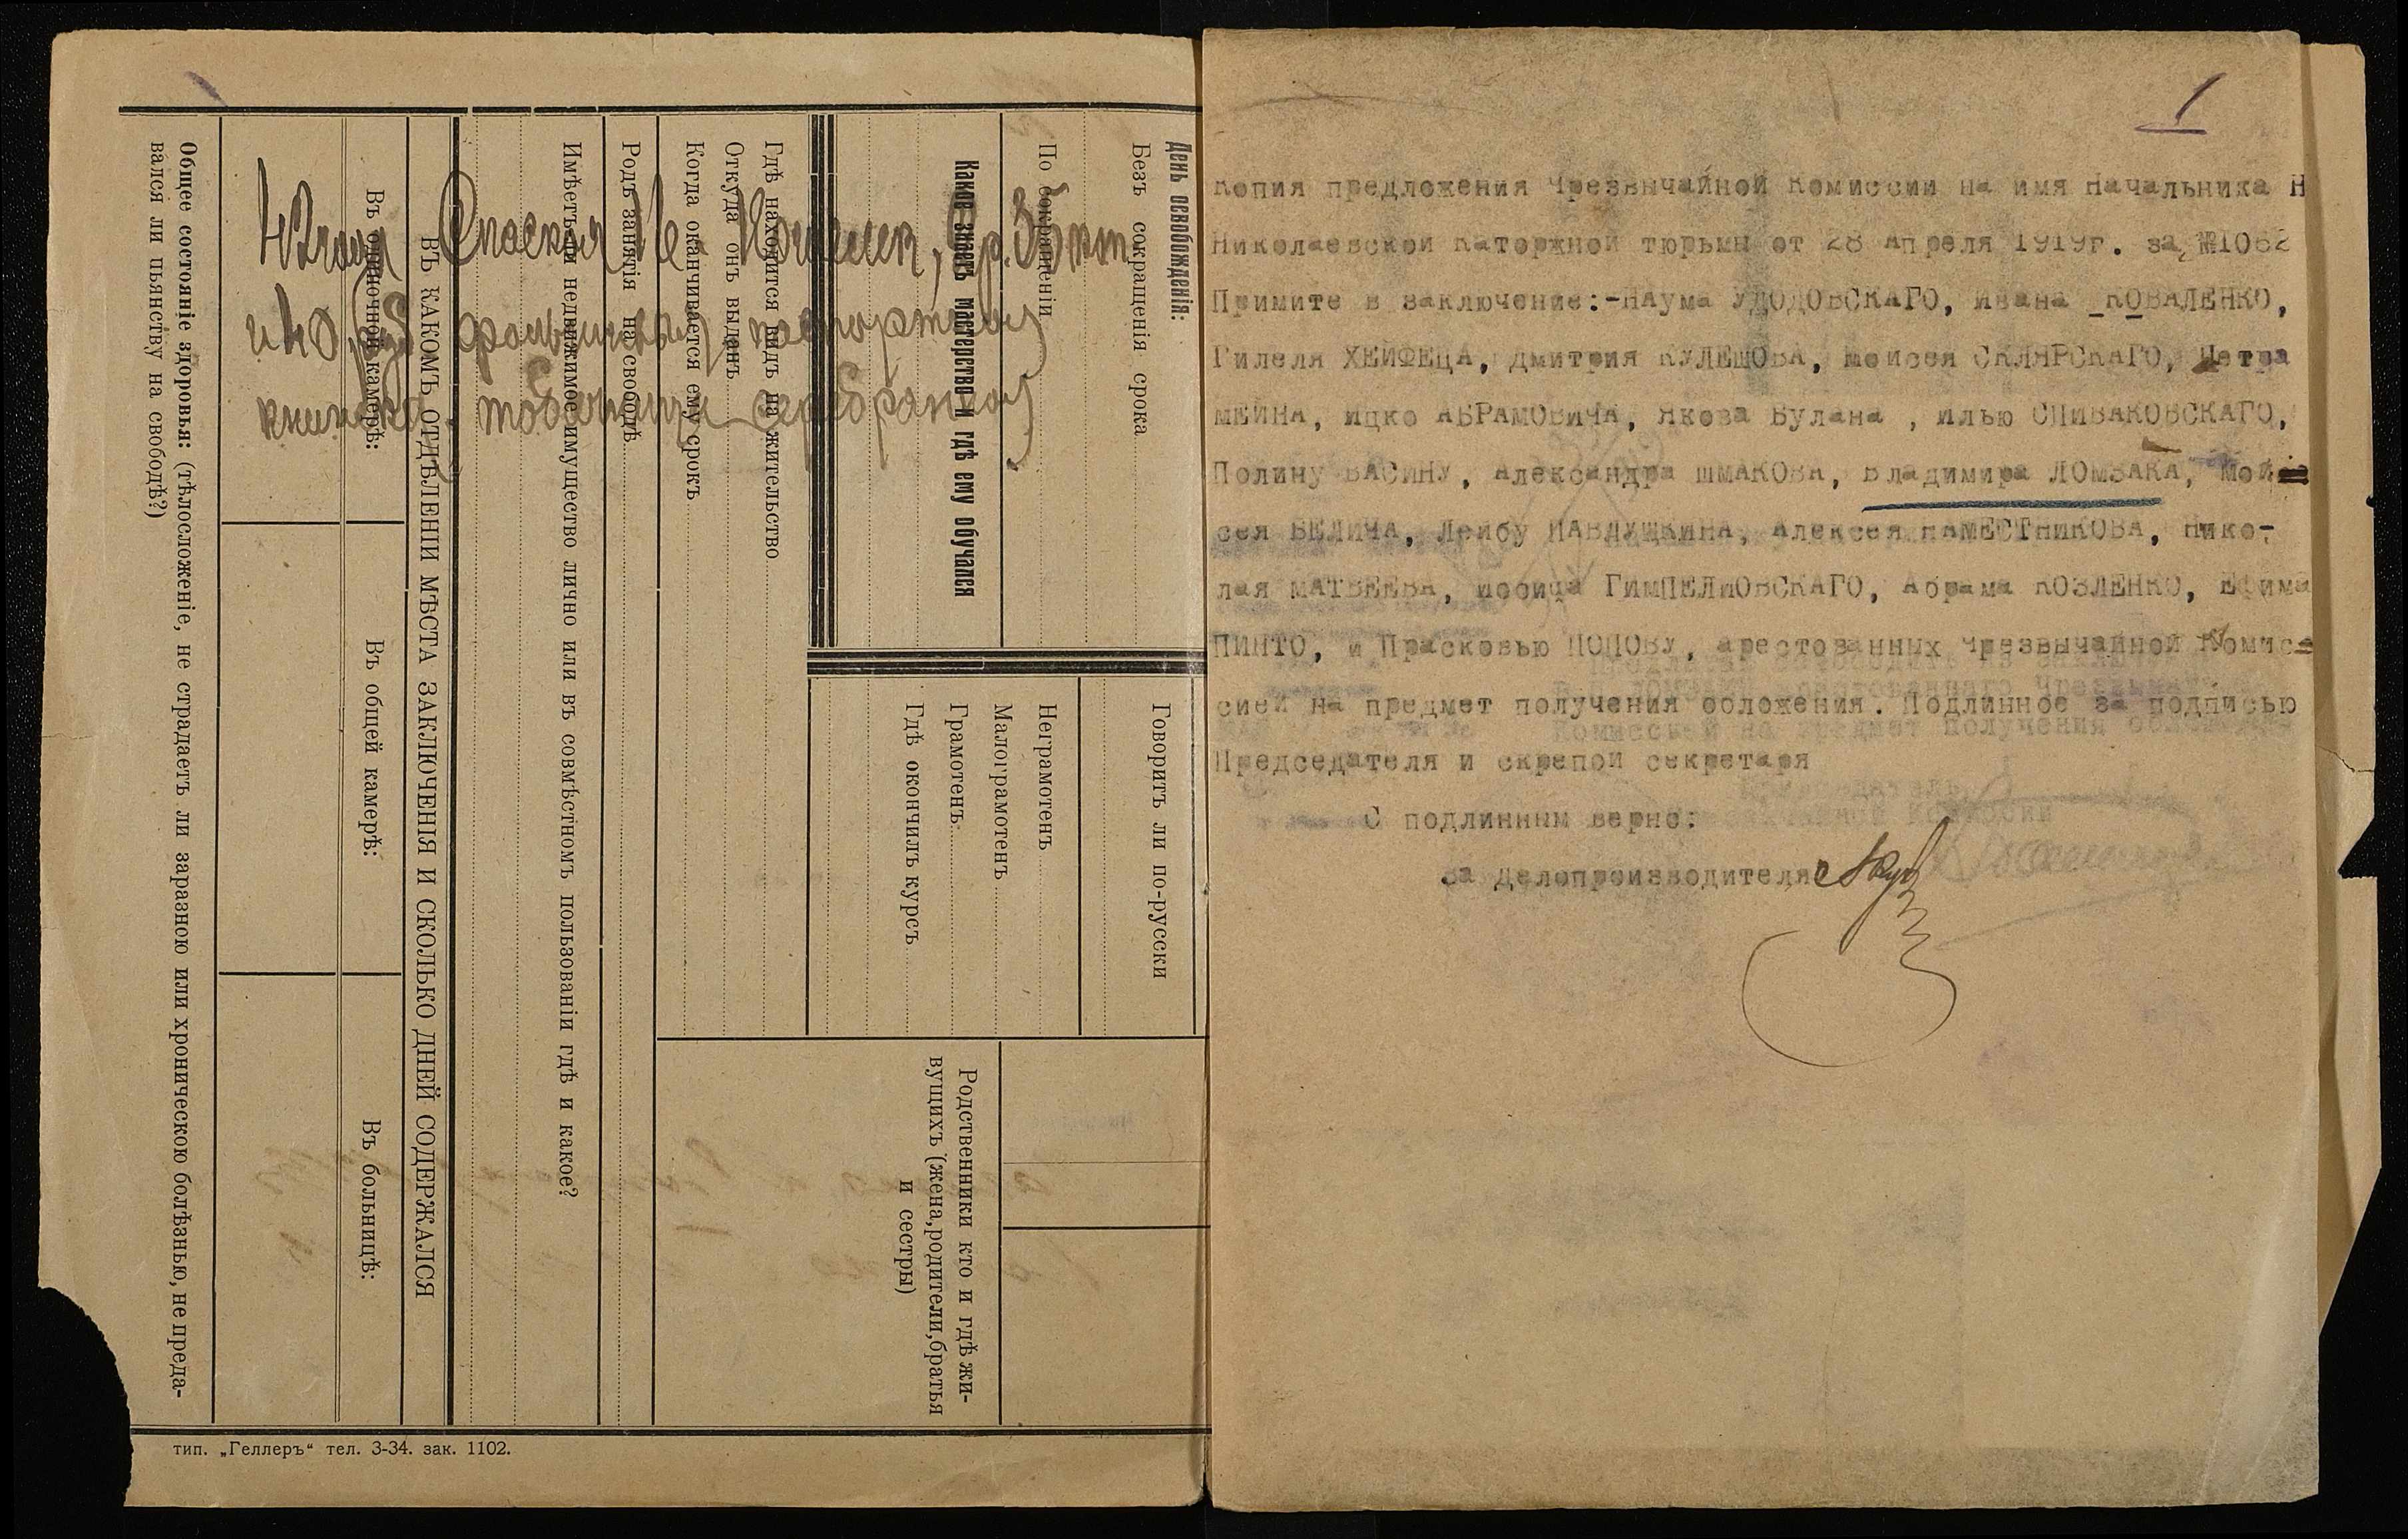 День освобожденія:
Безъ сокращенія срока
По сокращеніи
Какое знаетъ мастерство и гдѣ ему обучался
Говоритъ ли по-русски
Неграмотенъ
Малограмотенъ
Грамотенъ
Гдѣ окончилъ курсъ
Родственники кто и гдѣ жи-
вущихъ (жена,родители,братья
и сестры)
Гдѣ находится видъ на жительство
Откуда онъ выданъ
Когда оканчивается ему срокъ
Родъ занятія на свободѣ
Имѣетъ ли недвижимое имущество лично или въ совмѣстномъ пользованіи гдѣ и какое?
ВЪ КАКОМЪ ОТДѢЛЕНІИ МѢСТА ЗАКЛЮЧЕНІЯ И СКОЛЬКО ДНЕЙ СОДЕРЖАЛСЯ
Въ одиночной камерѣ:
Въ общей камерѣ:
Въ больницѣ:
Общее состояніе здоровья: (тѣлосложеніе, не страдаетъ ли заразною или хроническою болѣзнью, не преда-
вался ли пьянству на свободѣ?)
тип. „Геллеръ“ тел. 3-34. зак. 1102.
42 года Спаская
паспортная
книжка
1
Копия предложения Чрезвычайной Комиссии на имя Начальника Н
Николаевской Каторжной тюрьмы от 28 Апреля 1919г. за №1062
Примите в заключение:-Наума УДОДОВСКАГО, Ивана КОВАЛЕНКО,
Гилеля ХЕЙФЕЦА, Дмитрия КУЛЕШОВА, Моисея СКЛЯРСКАГО, Петра
МЕЙНА, Ицко АБРАМОВИЧА, Якова Булана , Илью СПИВАКОВСКАГО,
Полину ВАСИНУ, Александра ШМАКОВА, Владимира ЛОМЗАКА, Мой
сея БЕЛИЧА, Лейбу ПАВЛУШКИНА, Алексея НАМЕСТНИКОВА, Нико-
лая МАТВЕЕВА, Иосифа ГИМПЕЛИОВСКАГО, Абрама КОЗЛЕНКО, Ефима
ПИНТО, и Прасковью ПОПОВУ, арестованных Чрезвычайной Комис-
сией на предмет получения обложения. Подлинное за подписью
Председателя и скрепой секретаря
С подлинным верно:
За Делопроизводителя